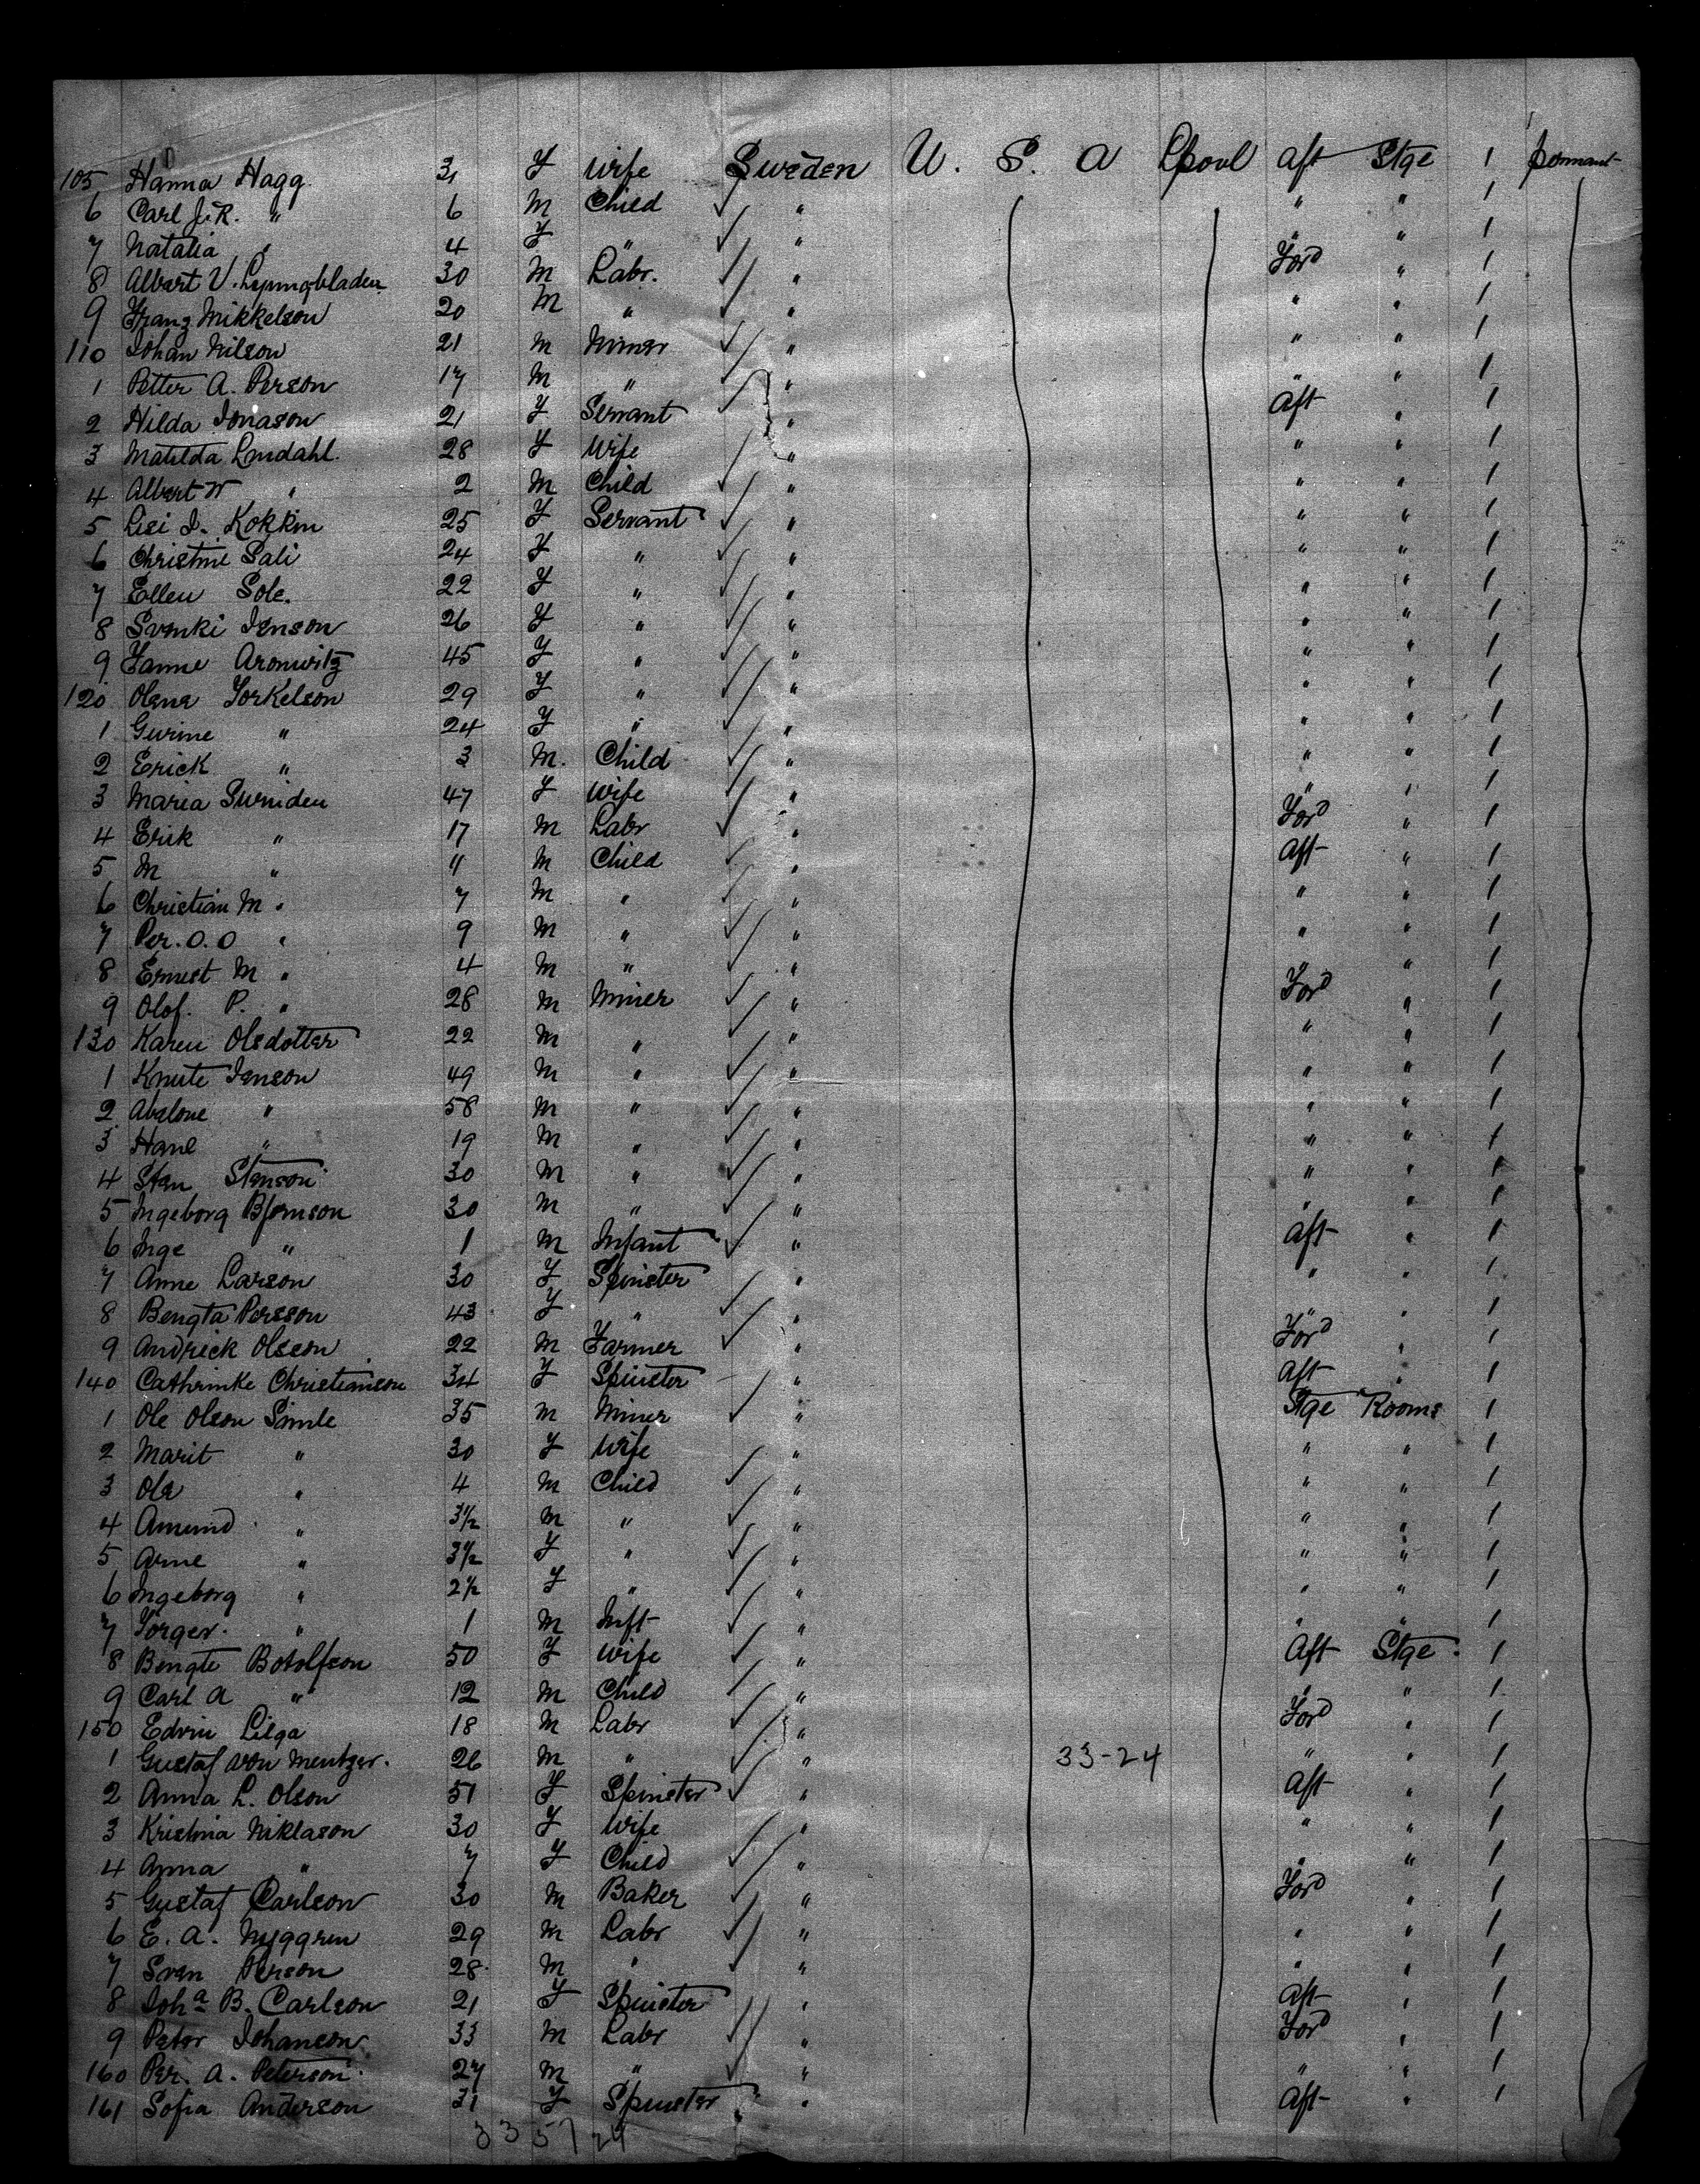 105 Hanna Hagg. 31 F Wife Sweden U. S. A Lpool Aft Stge 1 permanent
6 Carl J. R. " 6 M Child " " " 1
7 Natalia " 4 F " " " " 1
8 Albert V. Ljungbladen 30 M Labr. " Ford " 1
9 Franz Mikkelson 20 M " " " " 1
110 Johan Nilson 21 M Miner " " " 1
1 Petter A. Person 17 M " " " " 1
2 Hilda Jonason 21 F Servant " Aft " 1
3 Matilda Lindahl. 28 F Wife " " " 1
4 Albert W " 2 M Child " " " 1
5 Lisi J. Kokkin 25 F Servant " " " 1
6 Christine Sali 24 F " " " " 1
7 Ellen Sole. 22 F " " " " 1
8 Svenki Jenson 26 F " " " " 1
9 Fanne Aronwitz 45 F " " " " 1
120 Olena Torkelson 29 F " " " " 1
1 Gurine " 24 F " " " " 1
2 Erick " 3 M. Child " " " 1
3 Maria Sweniden 47 F Wife " " " 1
4 Erik " 17 M Labr " Ford " 1
5 M " 11 M Child " Aft " 1
6 Christian M " 7 M " " " " 1
7 Per. O. O " 9 M " " " " 1
8 Ernest M " 4 M " " " " 1
9 Olof. P. " 28 M Miner " Ford " 1
130 Karen Olsdotter 22 M " " " " 1
1 Knute Jenson 49 M " " " " 1
2 Abelone " 58 M " " " " 1
3 Hans " 19 M " " " " 1
4 Sten Stenson 30 M " " " " 1
5 Ingeborg Bjornson 30 M " " " " 1
6 Inge " 1 M Infant " Aft " 1
7 Anne Larson 30 F Spinster " " " 1
8 Bengta Persson 43 F " " " " 1
9 Andrick Olsson 22 M Farmer " Ford " 1
140 Cathrinke Christianson 34 F Spinster " Aft " 1
1 Ole Olson Simle 35 M Miner " Stge Rooms 1
2 Marit " 30 F Wife " " " 1
3 Ola " 4 M Child " " " 1
4 Amund " 3½ M " " " " 1
5 Arne " 3½ F " " " " 1
6 Ingeborg " 2½ F " " " " 1
7 Torger. " 1 M Inft " " " 1
8 Bengte Botolfson 50 F Wife " Aft Stge. 1
9 Carl A " 12 M Child " " " 1
150 Edvin Lilga 18 M Labr " Ford " 1
1 Gustaf von Mentzer. 26 M " " 33-24 " " 1
2 Anna L. Olson 51 F Spinster " Aft " 1
3 Kristina Niklason 30 F Wife " " " 1
4 Anna " 7 F Child " " " 1
5 Gustaf Carlson 30 M Baker " Ford " 1
6 E. A. Nyggren 29 M Labr " " " 1
7 Sven Person 28. M " " " " 1
8 Joha B. Carlson 21 F Spinster " Aft " 1
9 Peter Johanson 33 M Labr " Ford " 1
160 Per. A. Peterson 27 M " " " " 1
161 Sofia Anderson 31 F Spinster " Aft " 1
33 57 24